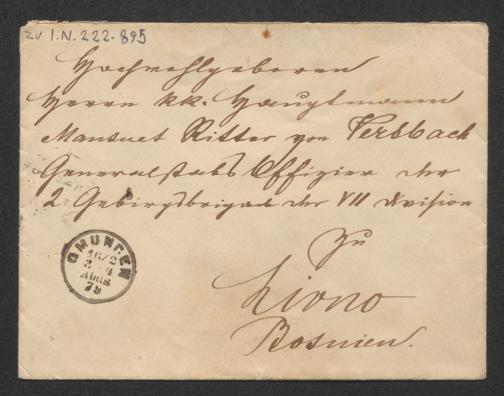 zu I.N. 222.895
Hochwohlgeboren
Herrn kk. Hauptmann
Mansuet Ritter von Versbach
Generalstabs Offizier der
2 Gebirgsbrigade der VII Division
zu
Livno
Bosnien.
GMUNDEN
16/2
79